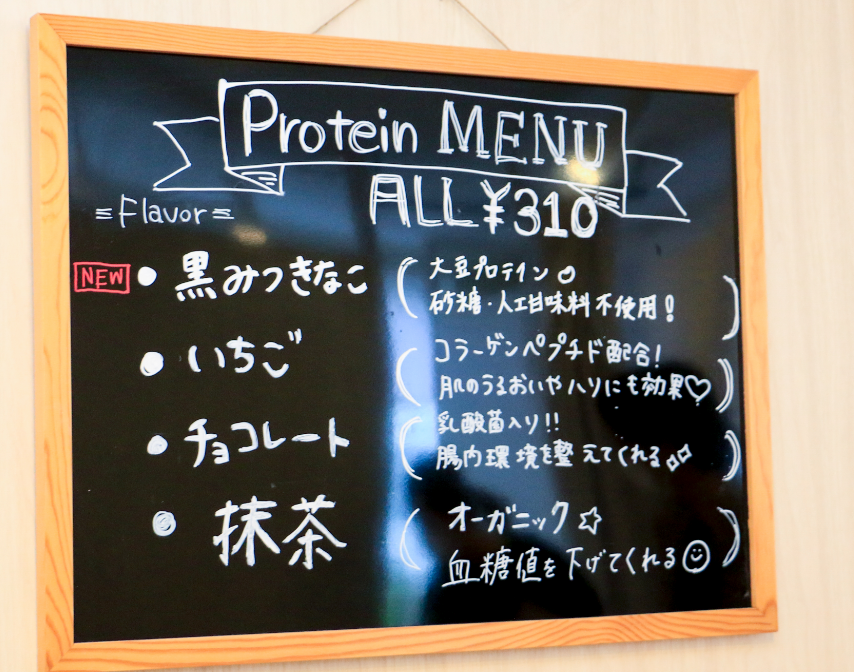 Protein MENU
ALL ¥310
=Flavor=
NEW ● 黒みつきなこ
(大豆プロテイン
砂糖・人工甘味料不使用!)
● いちご
(コラーゲンペプチド配合!
肌のうるおいやハリにも効果♡)
● チョコレート
(乳酸菌入り!!
腸内環境を整えてくれる)
● 抹茶
(オーガニック☆
血糖値を下げてくれる☺)